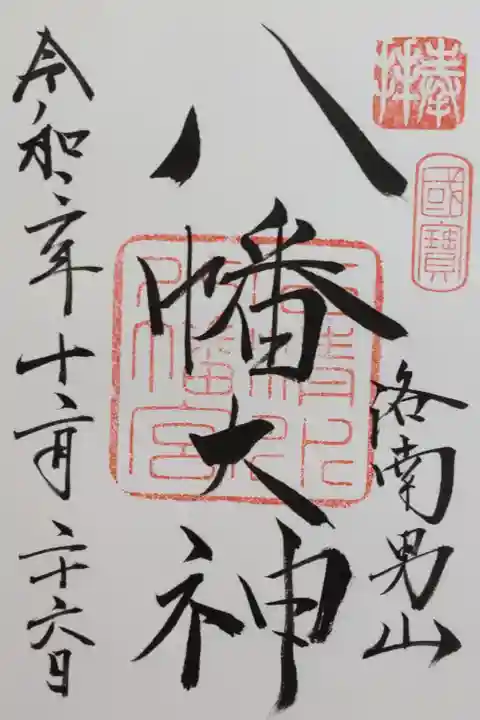 奉拝
國寶
洛南男山
八幡大神
石清水
八幡宮
令和二年十二月二十六日